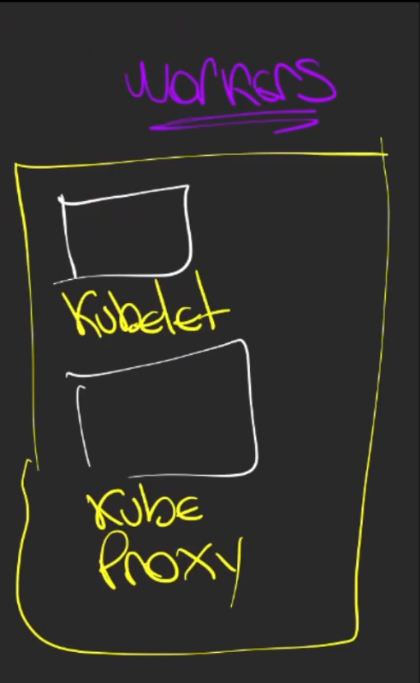 Workers
Kubelet
Kube
Proxy